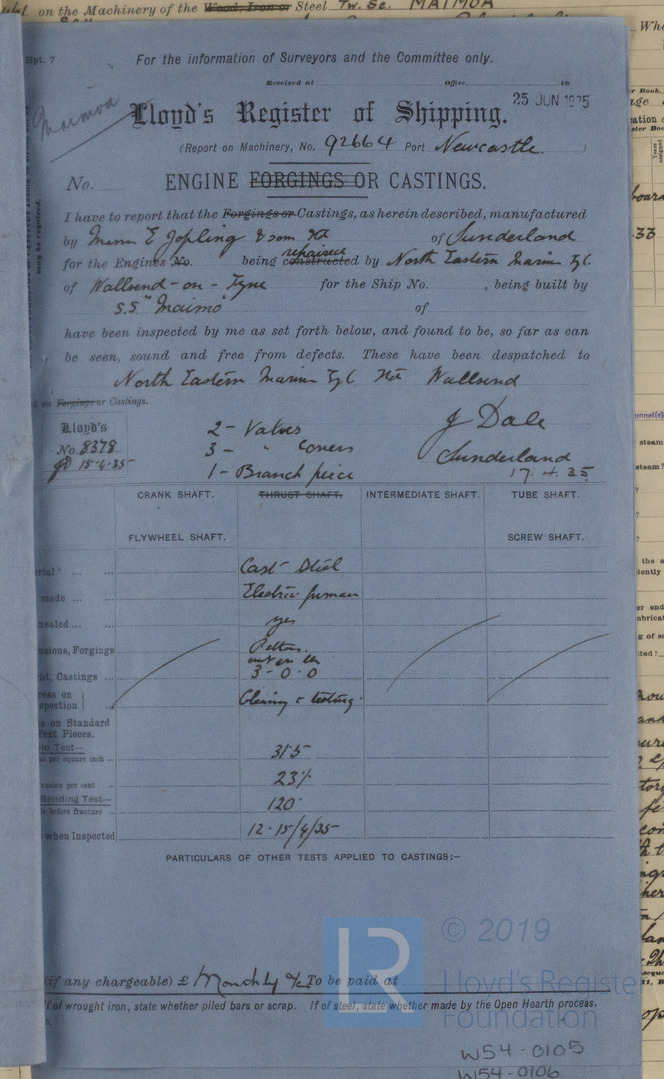 on the Machinery of the Wood, Iron or Steel Tw. Sc. MAIMOA
Rpt. 7
For the information of Surveyors and the Committee only.
Received at Office, 19
Maimoa
25 JUN 1935
Lloyd's Register of Shipping.
(Report on Machinery, No. 92664 Port Newcastle.)
No.
ENGINE FORGINGS OR CASTINGS.
I have to report that the Forgings or Castings, as herein described, manufactured
by Messrs E Jopling & Sons Ltd of Sunderland
repaired
for the Engines No. being constructed by North Eastern Marine Eg C.
of Wallsend-on-Tyne for the Ship No. , being built by
S.S. "Maimo of
have been inspected by me as set forth below, and found to be, so far as can
be seen, sound and free from defects. These have been despatched to
North Eastern Marine Eg C Ltd Wallsend
k on Forgings or Castings.
Lloyd's
No. 8378
JD 15-4-35
2- Valves
3- " Covers
1- Branch piece
J Dale
Sunderland
17.4.35
CRANK SHAFT. THRUST SHAFT. INTERMEDIATE SHAFT. TUBE SHAFT.
FLYWHEEL SHAFT. SCREW SHAFT.
rial Cast Steel
made Electric furnace
nealed yes
nsions, Forgings
ht, Castings 3-0-0
ress on
spection Cleaning & testing.
s on Standard
Test Pieces.
le Test—
ns per square inch 31.5
nsion per cent 23%
Bending Test—
le before fracture 120°
when Inspected 12-15/4/35
PARTICULARS OF OTHER TESTS APPLIED TO CASTINGS:—
© 2019
Lloyd's Registe
Foundation
(if any chargeable) £ Monthly a/c To be paid at
If of wrought iron, state whether piled bars or scrap. If of steel, state whether made by the Open Hearth process.
W54-0105
W54-0106